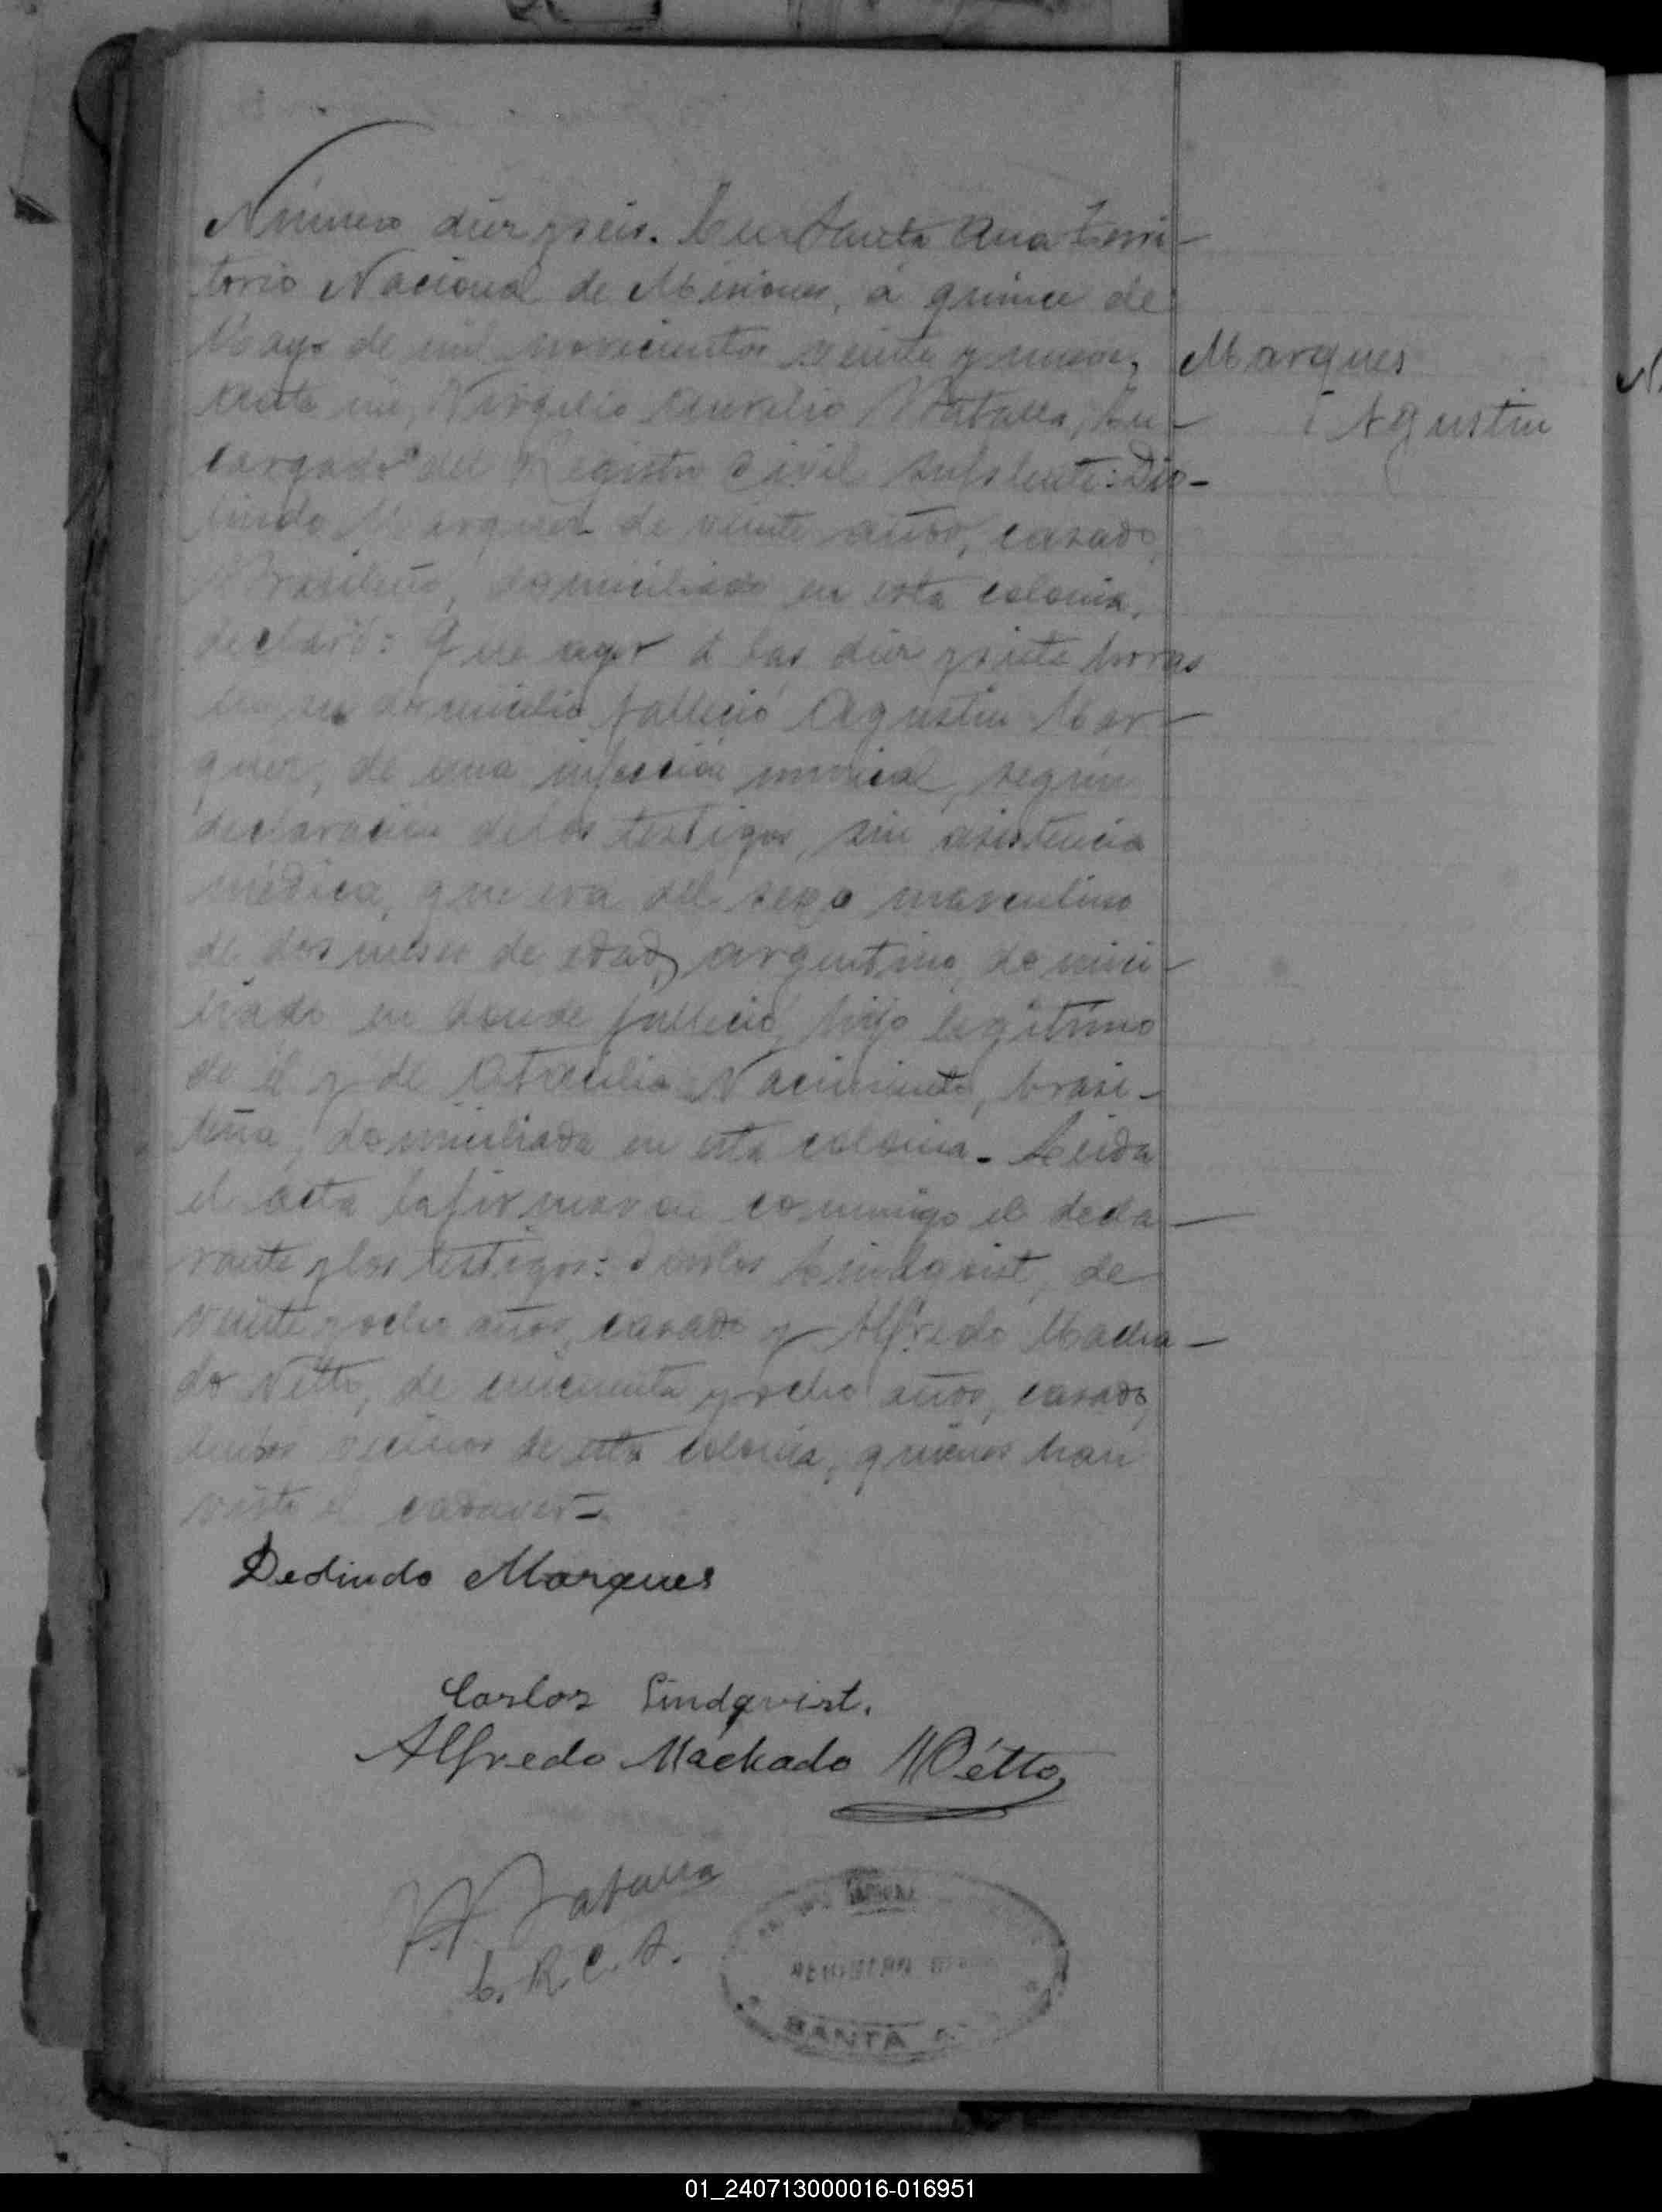 Número diez y seis. En Santa Ana Terri-
torio Nacional de Misiones, á quince de
Mayo de mil novecientos veinte y nueve,
Marques
ante mi, Virgilio Aurelio Batalla, En-
Agustin
cargado del Registro Civil
de veinte años, casado,
Brasileño, domiciliado en esta colonia,
declaró: Que ayer á las diez y siete horas
en su domicilio falleció Agustin Mar-
quez, de una infección, según
declaración de los testigos, sin asistencia
médica, que era del sexo masculino
de dos meses de edad, argentino, domici-
liado en donde falleció, hijo legítimo
de él y de Nacimiento, brasi-
leña, domiciliada en esta colonia. Leida
el acta la firmaron conmigo el decla-
rante y los testigos: Carlos Lindqvist, de
veinte y ocho años, casado y Alfredo Macha-
do Netto, de cincuenta y ocho años, casado,
vecinos de esta colonia, quienes han
visto el cadaver.
Marques
Carlos Lindqvist.
Alfredo Machado Nétto
V.A. Batalla
E. R. C. S.
SANTA
01_240713000016-016951